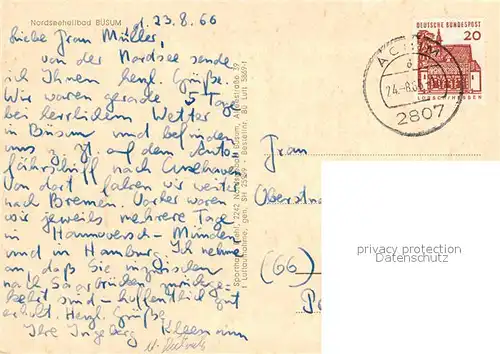 Nordseeheilbad BÜSUM
d. 23.8.66
Liebe Frau Müller,
von der Nordsee sende
ich Ihnen herzl. Grüße.
Wir waren gerade 5 Tage
bei herrlichem Wetter
in Büsum und befinden
uns z. Zt. auf dem Auto-
fährschiff nach Cuxhaven.
Von dort fahren wir weiter
nach Bremen. Vorher waren
wir jeweils mehrere Tage
in Hannoversch-Münden
und in Hamburg. Ich nehme
an daß Sie inzwischen
nach Saarbrücken zurückge-
kehrt sind - hoffentlich gut
erholt. Herzl. Grüße
Ihre Ingeborg Kleemann
DEUTSCHE BUNDESPOST
20
LORSCH/HESSEN
ACHIM
24.-8.66
2807
Frau
Oberstr
(66)
privacy protection
Datenschutz